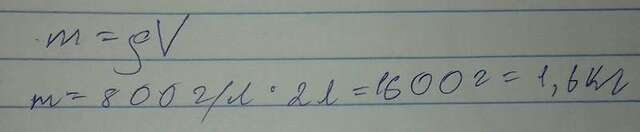 m = ρV
m = 800 г/л · 2 л = 1600 г = 1,6 кг